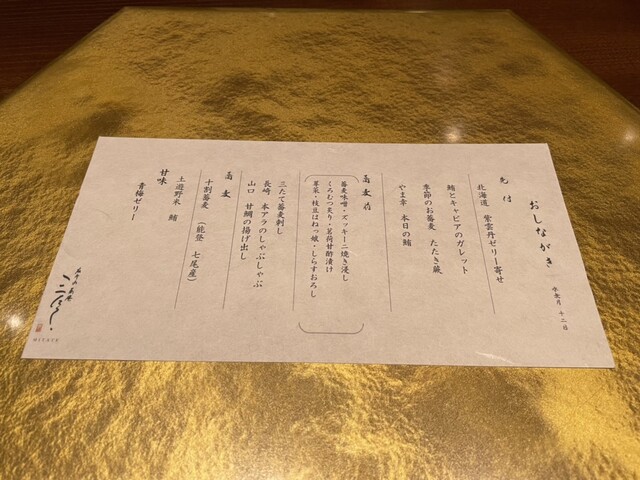 おしながき
水無月 十二日
先付
北海道 紫雲丹ゼリー寄せ
鮪とキャビアのガレット
季節のお蕎麦 たたき蕨
やま幸 本日の鮪
蕎麦前
蕎麦味噌・ズッキーニ焼き浸し
くろむつ炙り・茗荷甘酢漬け
蓴菜・枝豆はねっ娘・しらすおろし
三たて蕎麦刺し
長崎 本アラのしゃぶしゃぶ
山口 甘鯛の揚げ出し
蕎麦
十割蕎麦 (能登 七尾産)
土遊野米 鮪
甘味
青梅ゼリー